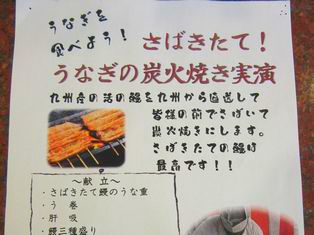 うなぎを
食べよう！
さばきたて！
うなぎの炭火焼き実演
九州産の活の鰻を九州から直送して
皆様の前でさばいて
炭火焼きにします。
さばきたての鰻は
最高です！！
～献 立～
・さばきたて鰻のうな重
・う 巻
・肝 吸
・鰻三種盛り